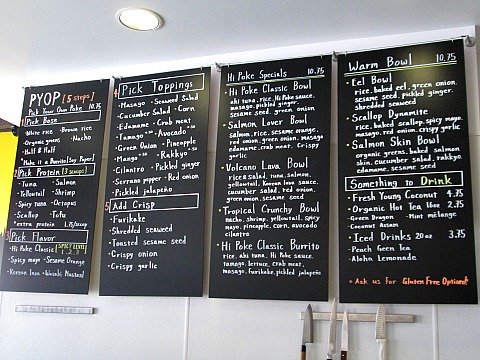 PYOP [5 steps]
Pick Your Own Poke 10.75
1 Pick Base
White rice · Brown rice
Organic greens · Nacho
Half & Half
Make it a Burrito/Soy Paper!
2 Pick Protein [3 scoops]
· Tuna · Salmon
· Yellowtail · Shrimp
· Spicy tuna · Octopus
· Scallop · Tofu
extra protein 1.75/scoop
3 Pick Flavor
· Hi Poke Classic [SPICY LEVEL
1. 2. 3]
· Spicy mayo · Sesame Orange
· Korean Luau · Wasabi Mustard
4 Pick Toppings
· Masago · Seaweed Salad
· Cucumber Salad
· Edamame · Corn
· Tamago · Avocado
· Green Onion · Pineapple
· Mango · Rakkyo
· Cilantro · Pickled ginger
· Serrano pepper · Red onion
· Pickled jalapeño
5 Add Crisp
· Furikake
· Shredded Nori
· Toasted sesame seed
· Crispy onion
· Crispy garlic
Hi Poke Specials 10.75
· Hi Poke Classic Bowl
ahi tuna, rice, Hi Poke sauce,
masago, pickled ginger
sesame seed, green onion
· Salmon Lover Bowl
salmon, rice, sesame orange,
red onion, green onion,
edamame, crab meat, Crispy
garlic
· Volcano Lava Bowl
rice, Salad, tuna, salmon,
yellowtail, Korean luau sauce,
cucumber salad, red onion,
edamame, sesame seed
· Tropical Crunchy Bowl
nacho, shrimp, yellowtail, spicy
mayo, pineapple, corn, avocado
cilantro
· Hi Poke Classic Burrito
rice, ahi tuna, Hi Poke sauce,
tamago, lettuce, crab meat,
masago, furikake, pickled jalapeño
Warm Bowl 10.75
· Eel Bowl
rice, baked eel, green onion,
sesame seed, pickled ginger,
shredded seaweed
· Scallop Dynamite
rice, baked scallop, spicy mayo,
masago, red onion, crispy garlic
· Salmon Skin Bowl
organic greens, baked salmon
skin, cucumber salad, edamame,
sesame seed
Something to Drink
· Fresh Young Coconut 4.75
· Organic Hot Tea 16oz 2.75
· Green Dragon · Mint mélange
· Coconut Assam
· Iced Drinks 20oz 3.75
· Peach Green Tea
· Aloha Lemonade
* Ask us for Gluten Free Options!